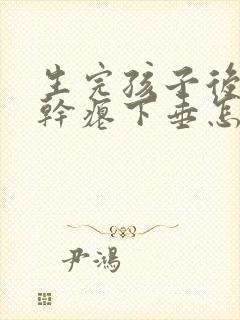 生完孩子後
幹瘪下垂怎
尹鴻